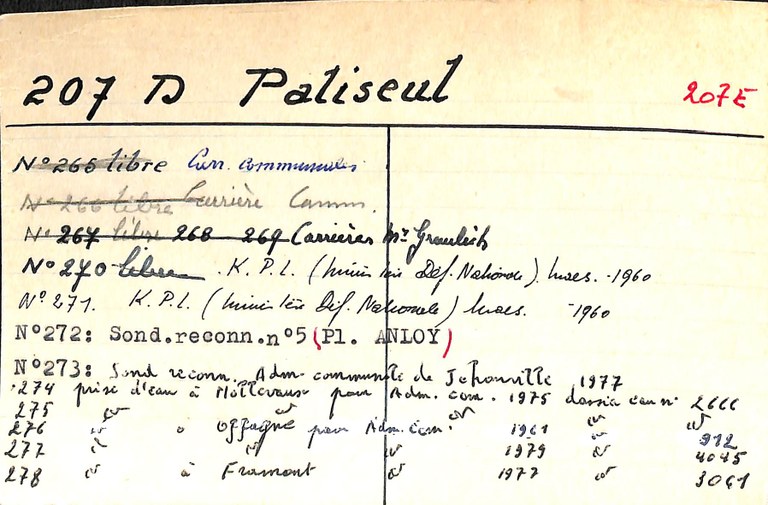 207 D Paliseul 207E
N° 265 libre Carr. communales
N° 266 libre Carrière Comm.
N° 267 libre 268 - 269 Carrières Mr Graulich
N° 270 libre K.P.l. (Ministère Déf. Nationale). Maes. - 1960
N° 271. K.P.l. (Ministère Déf. Nationale) Maes. - 1960
N°272: Sond.reconn.n°5(Pl. ANLOY)
N°273: Sond reconn. Adm. communale de Jehonville 1977
274 prise d'eau à Mollevaux pour Adm. com. 1975 dossier eau n° 2666
275 " " " " "
276 " à Offagne pour Adm. com. 1961 " 912
277 " " " 1979 " 4045
278 " à Framont " 1977 " 3061